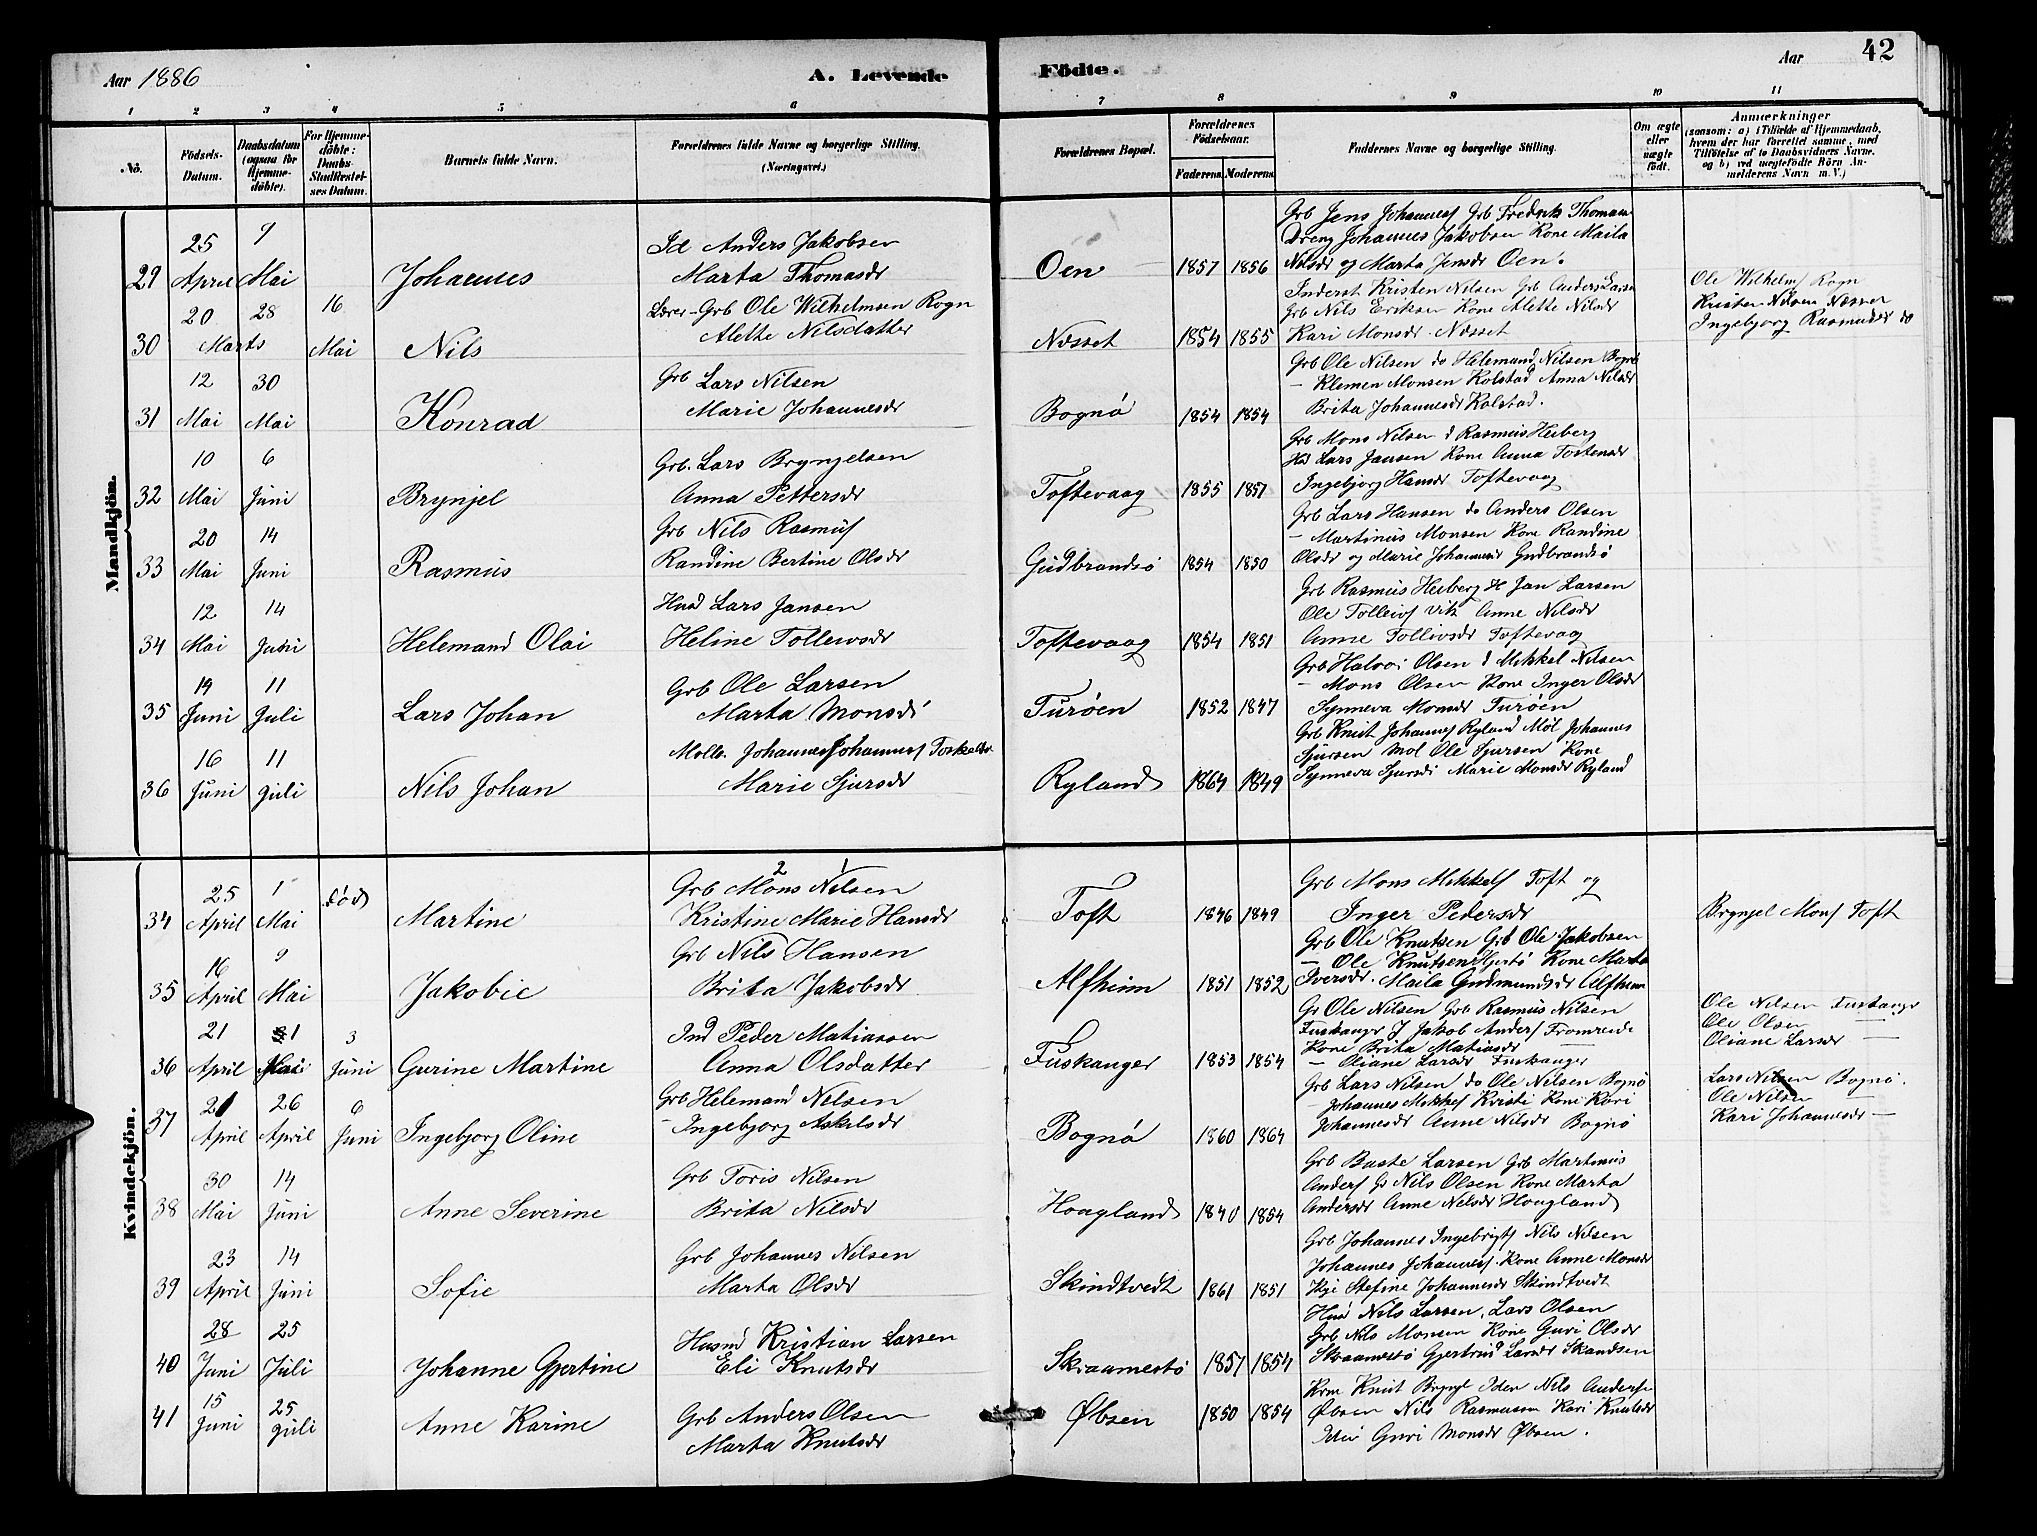 Aar 1886
A. Levende Födte.
Aar
42
1 2 3 4 5 6 7 8 9 10 11
No.
Födsels-Datum.
Daabsdatum (ogsaa for Hjemmedöbte).
For Hjemmedöbte: Daabs-Stadfæstelses Datum.
Barnets fulde Navn.
Forældrenes fulde Navne og borgerlige Stilling. (Næringsvei.)
Forældrenes Bopæl.
Forældrenes Födselsaar.
Faderens. Moderens.
Faddernes Navne og borgerlige Stilling.
Om ægte eller uægte födt.
Anmærkninger (saasom: a) i Tilfælde af Hjemmedaab, hvem der har forrettet samme, med Tilföielse af to Daabsvidners Navne, og b) ved uægtefödte Börn Anmelderens Navn m. V.)
Mandkjön.
29 25 April 9 Mai Johannes
Anders Jakobsen
Marta Thomasdr
Oen 1857 1856
Grb Jens Johannes Grb Fredrik Thomas
Dreng Johannes Jakobsen Kone Maila
Nilsdr og Marta Jensdr Oen.
30 20 Marts 28 16 Mai Nils
Lærer-Grb Ole Wilhelmsen Rogn
Alette Nilsdatter
Nesset 1854 1855
Inderst Kristen Nilsen Grb Anders Larsen
Grb Nils Eriksen Kone Alette Nilsdr
Kari Monsdr Nesset
Ole Wilhelms Rogn
Kristen Nilsen Nesset
Ingebjorg Rasmusdr do
31 12 Mai 30 Mai Konrad
Grb Lars Nilsen
Marie Johannesdr
Bognö 1854 1854
Grb Ole Nilsen do Helemand Nilsen Bognö
- Klemen Monsen Kolstad Anna Nilsdr
Brita Johannesdr Kolstad.
32 10 Mai 6 Juni Brynjel
Grb. Lars Brynjelsen
Anna Pettersdr
Toftevaag 1855 1857
Grb Mons Nilsen d Rasmus Heiberg
Hd Lars Jansen Kone Anna Torstensdr
Ingebjorg Hansdr Toftevaag
33 20 Mai 14 Juni Rasmus
Grb Nils Rasmus
Randine Bertine Olsdr
Gudbrandsö 1854 1850
Grb Lars Hansen do Anders Olsen
- Martinus Monsen Kone Randine
Olsdr og Marie Johannesdr Gudbrandsö
34 12 Mai 14 Juni Helemand Olai
Husd Lars Jansen
Heline Tolleivsdr
Toftevaag 1854 1851
Grb Rasmus Heiberg H Jan Larsen
Ole Tolleivs Vik Anne Nilsdr
Anne Tollivsdr Toftevag
35 19 Juni 11 Juli Lars Johan
Grb Ole Larsen
Marta Monsd
Turöen 1852 1847
Grb Halvor Olsen d Mikkel Nilsen
- Mons Olsen Kone Inger Olsdr
Synneva Monsdr Turöen
36 16 Juni 11 Juli Nils Johan
Molle. Johannes Johannes
Marie Sjursdr
Ryland 1864 1849
Grb Knut Johannes Ryland Möl Johannes
Sjursen Möl Ole Sjursen Kone
Synneva Sjursd Marie Monsdr Ryland
Kvindekjön.
34 25 April 1 Mai död Martine
Grb Mons 2 Nilsen 1
Kristine Marie Hansdr
Toft 1846 1849
Grb Mons Mikkels Toft og
Inger Pedersdr
Brynjel Mons Toft
35 16 April 9 Mai Jakobie
Grb Nils Hansen
Brita Jakobsdr
Alfheim 1851 1852
Grb Ole Knutsen Grb Ole Jakobsen
- Ole Knutsen Hjertö Kone Marta
Iversdr. Maila Gudmundsdr Alfheim
36 21 April 1 Mai 3 Juni Gurine Martine
Ind Peder Matiassen
Anna Olsdatter
Fuskanger 1853 1854
Gr Ole Nilsen Grb Rasmus Nilsen
Fuskanger J Jakob Anders Fromreide
Kone Brita Matiasdr -
- Oliane Larsdr Fuskanger
Ole Nilsen Fuskanger
Ole Olsen
Oliane Larsdr -
37 21 April 26 April 6 Juni Ingebjorg Oline
Grb Helemand Nilsen
- Ingebjorg Askelsdr
Bognö 1860 1864
Grb Lars Nilsen do Ole Nilsen Bognö
- Johannes Mikkels Kone Kari
Johannesdr Anne Nilsdr Bognö
Lars Nilsen Bognö.
Ole Nilsen -
Kari Johannesdr -
38 30 Mai 14 Juni Anne Severine
Grb Toris Nilsen
Brita Nilsdr
Hoagland 1840 1854
Grb Baste Larsen Grb Martinus
Anders G Nils Olsen Kone Marta
Andersdr Anne Nilsdr Hoagland
39 23 April 14 Juni Sofie
Grb Johannes Nilsen
Marta Olsdr
Skindtvedt 1861 1851
Grb Johannes Ingebrigts Nils Nilsen
Johannes Johannes. Kone Anne Monsdr
Pige Stefine Johannesdr Skindtvedt
40 28 Juni 25 Juli Johanne Gjertine
Husmd Kristian Larsen
Eli Knutsdr
Skraamestö 1857 1854
Husd Nils Larsen, Lars Olsen
Grb Nils Monsen Kone Guri Olsdr
Skraamestö Gjertrud Larsdr Skandsen
41 15 Juni 25 Juli Anne Karine
Grb Anders Olsen
Marta Knutsdr
Øbsen 1850 1854
Knut Nils Anders
Øbsen Nils Rasmussen Kari Knutsdr
Guri Monsdr Øbsen.